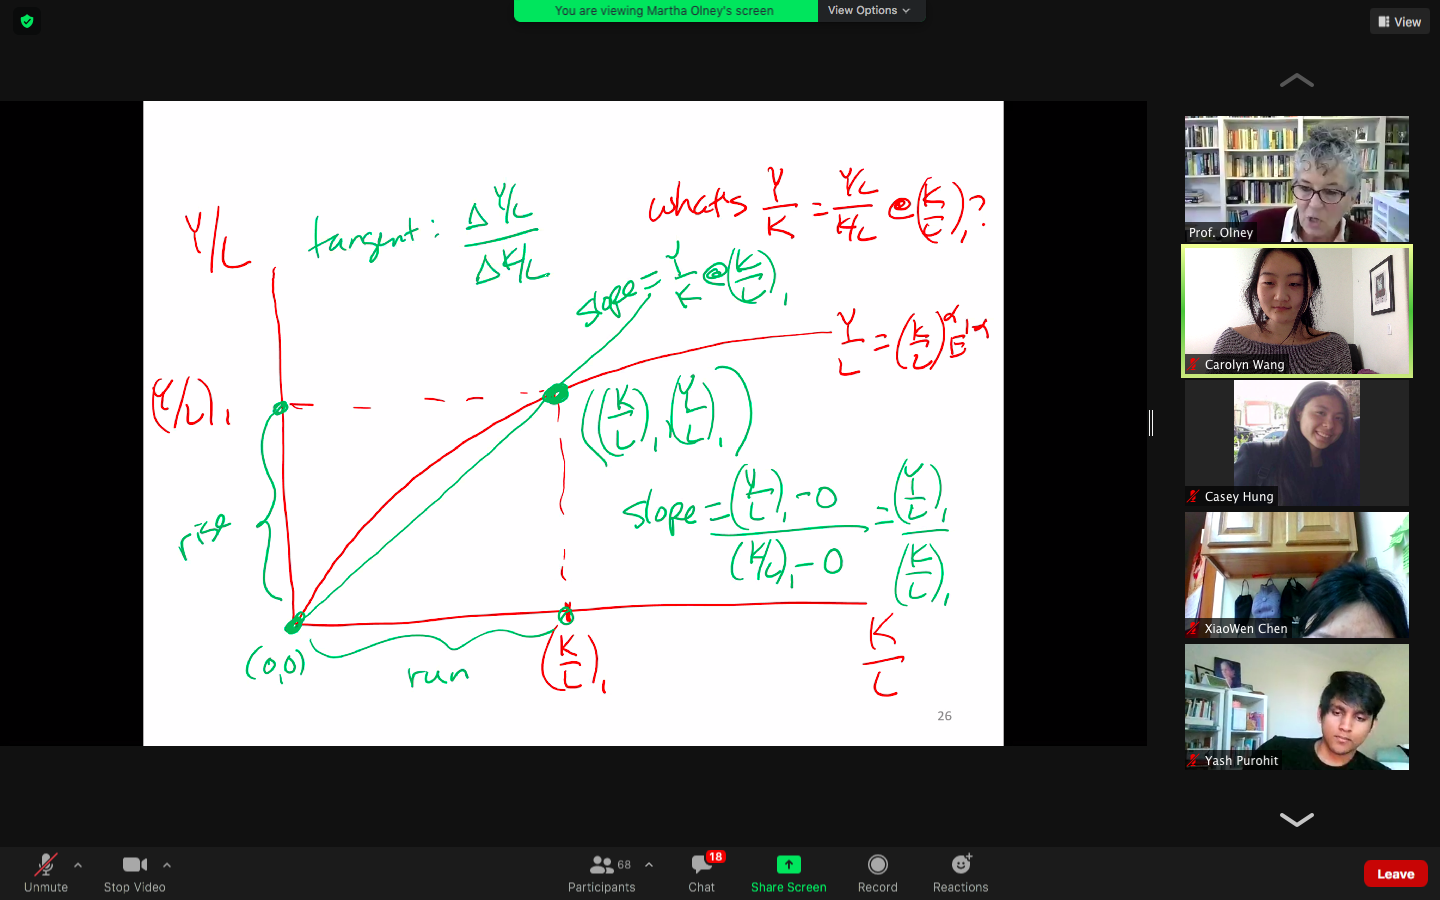 You are viewing Martha Olney's screen
View Options
View
Y/L
tangent: Δ Y/L / Δ K/L
what's Y/K = Y/L / K/L @ (K/L)₁?
slope = Y/K @ (K/L)₁
Y/L = (K/L)^α E^1-α
(Y/L)₁
((K/L)₁, (Y/L)₁)
slope = (Y/L)₁ - 0 / (K/L)₁ - 0 = (Y/L)₁ / (K/L)₁
rise
(0,0)
run
(K/L)₁
K/L
26
Prof. Olney
Carolyn Wang
Casey Hung
XiaoWen Chen
Yash Purohit
Unmute
Stop Video
68
Participants
18
Chat
Share Screen
Record
Reactions
Leave